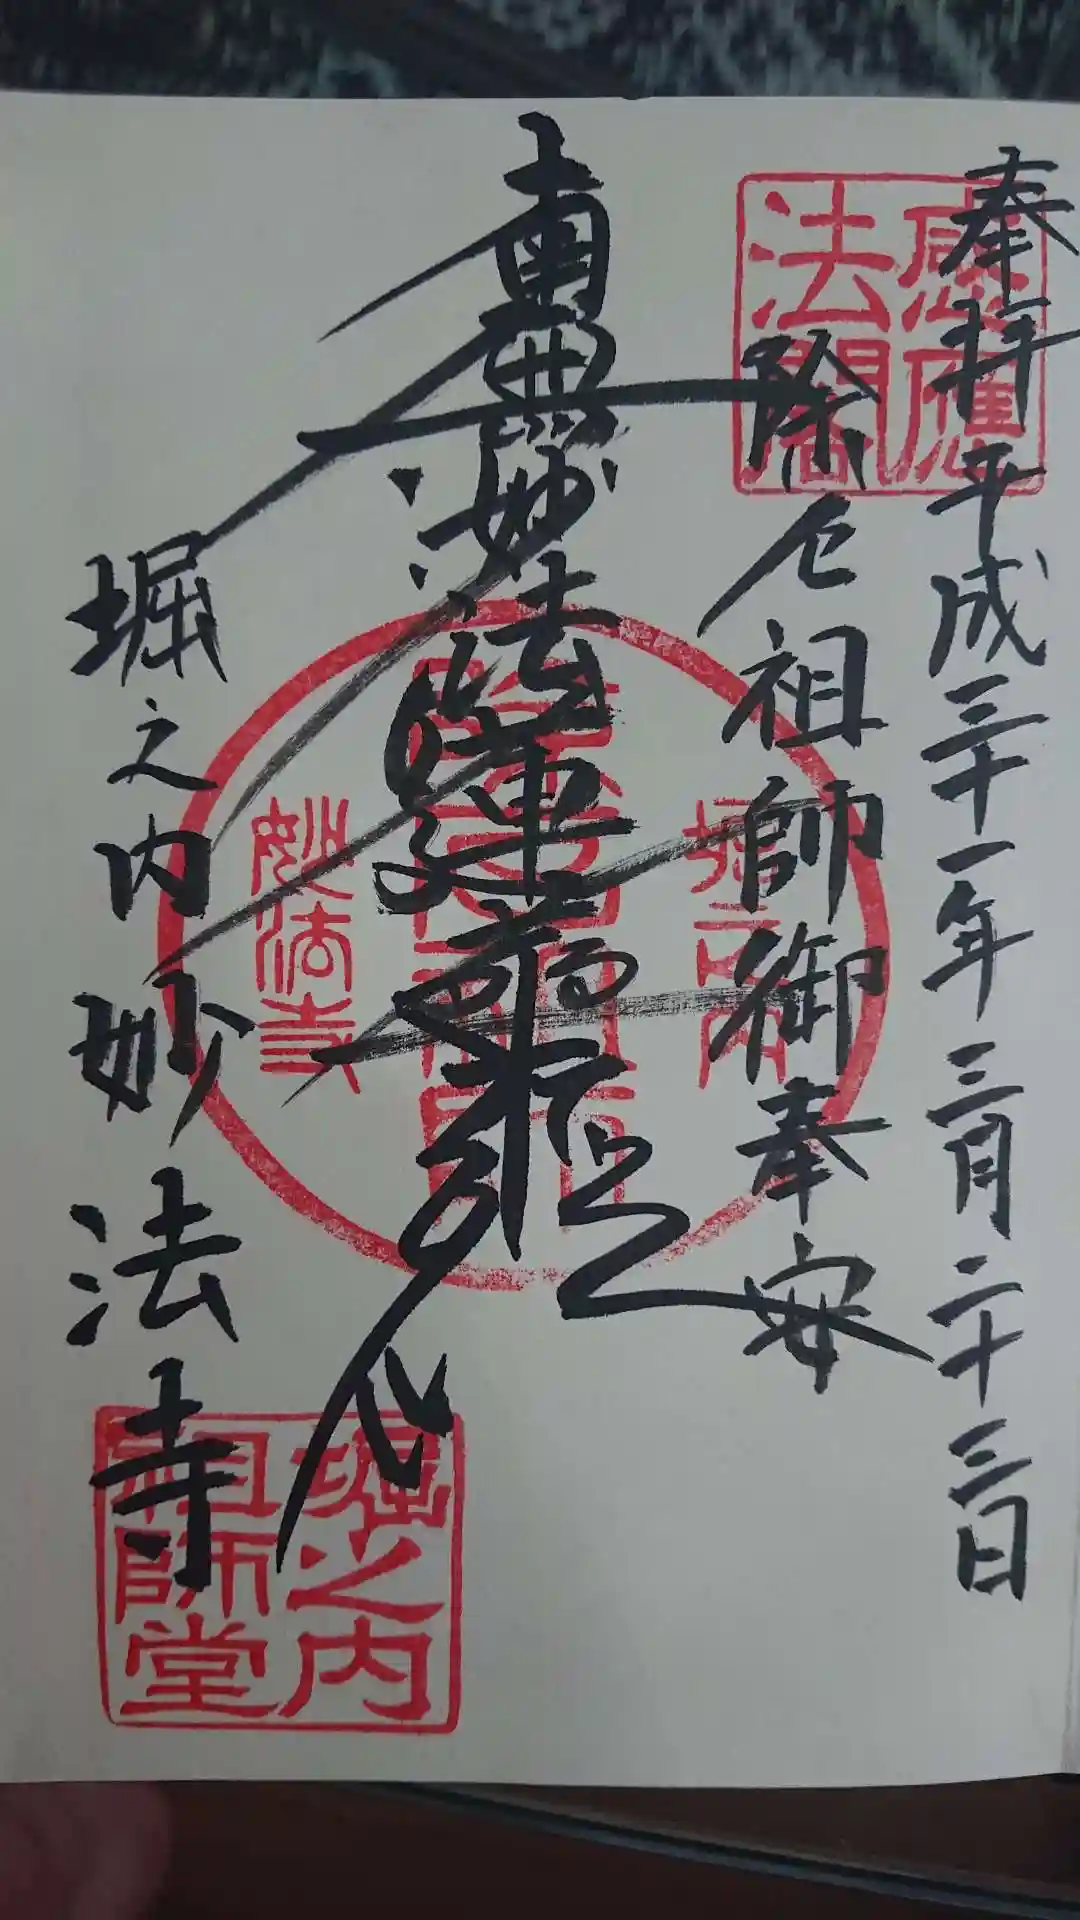 奉拝平成三十一年三月二十三日
感應
法閣
除厄祖師御奉安
南無妙法蓮華経
堀之内
妙法寺
堀之内妙法寺
堀之内
祖師堂